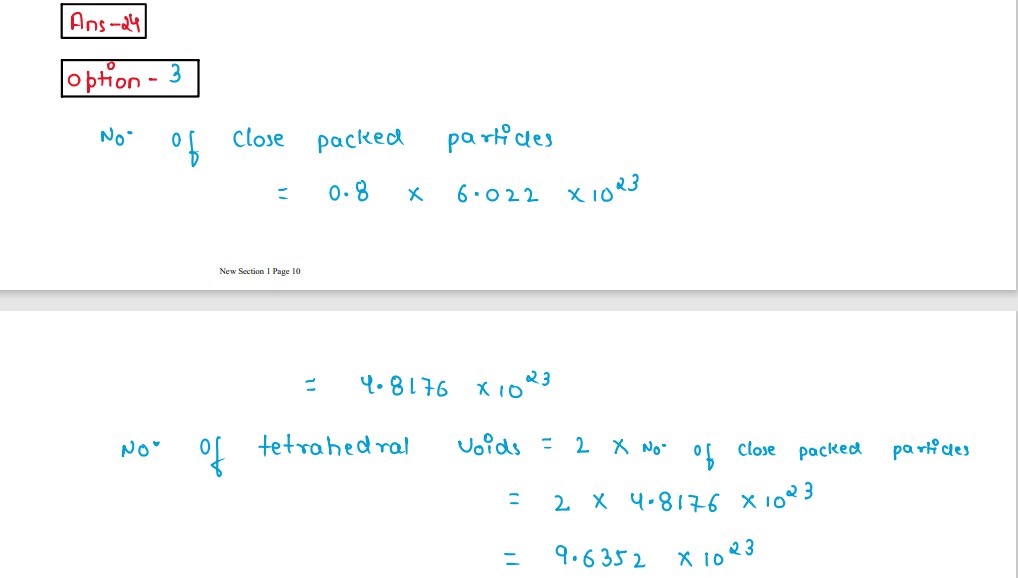 Ans-24
Option - 3
No. of close packed particles
= 0.8 × 6.022 × 10²³
New Section 1 Page 10
= 4.8176 × 10²³
No. of tetrahedral voids = 2 × No. of close packed particles
= 2 × 4.8176 × 10²³
= 9.6352 × 10²³